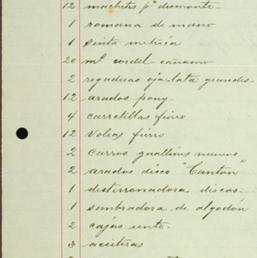 12 machetes pª desmonte.
1 romana de mano
1 cinta métrica
20 mˢ cordel cáñamo
2 regaderas oja lata grandes.
12 arados pony
4 carretillas fierro
12 Voleas fierro
2 carros nuevos
2 arados disco "Canton"
1 desterronadora discos.
1 sembradora de algodón
2 cajas
3 aceiteras